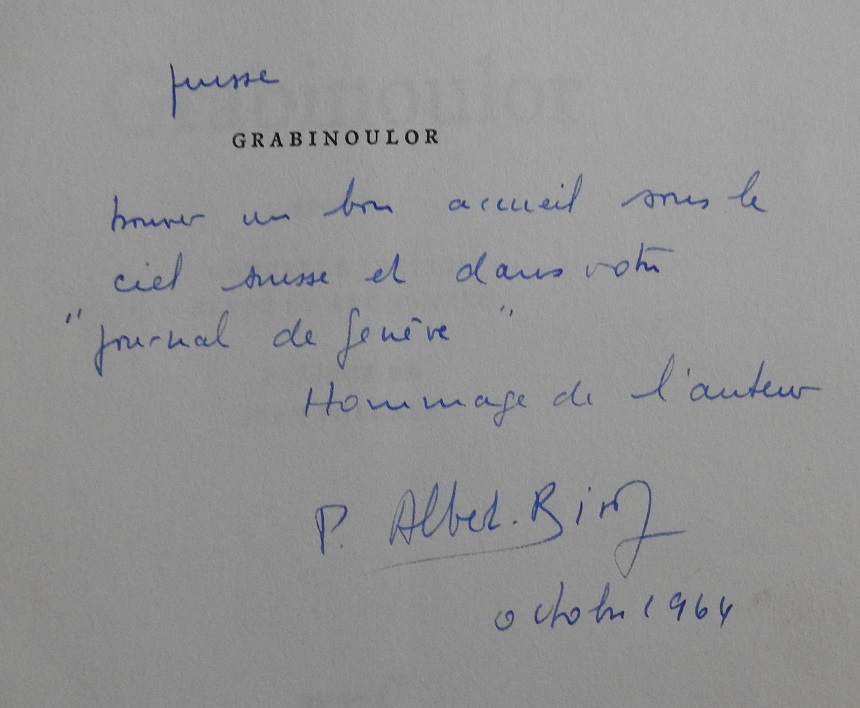 puisse
GRABINOULOR
trouver un bon accueil sous le
ciel suisse et dans votre
"journal de Genève"
Hommage de l'auteur
P. Albert-Birot
octobre 1964